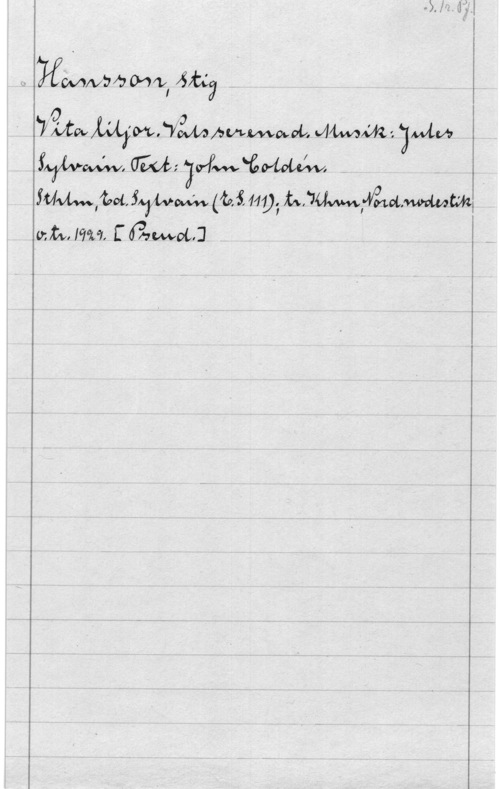 S. Tr. Pf.
Hansson, Stig
Vita liljor. Valsserenad. Musik: Jules
Sylvain. Text: John Coldén.
Sthlm, Ed. Sylvain (E.S. 111); tr. Khvn, Nord. nodestik
o. tr. 1929. [Pseud.]